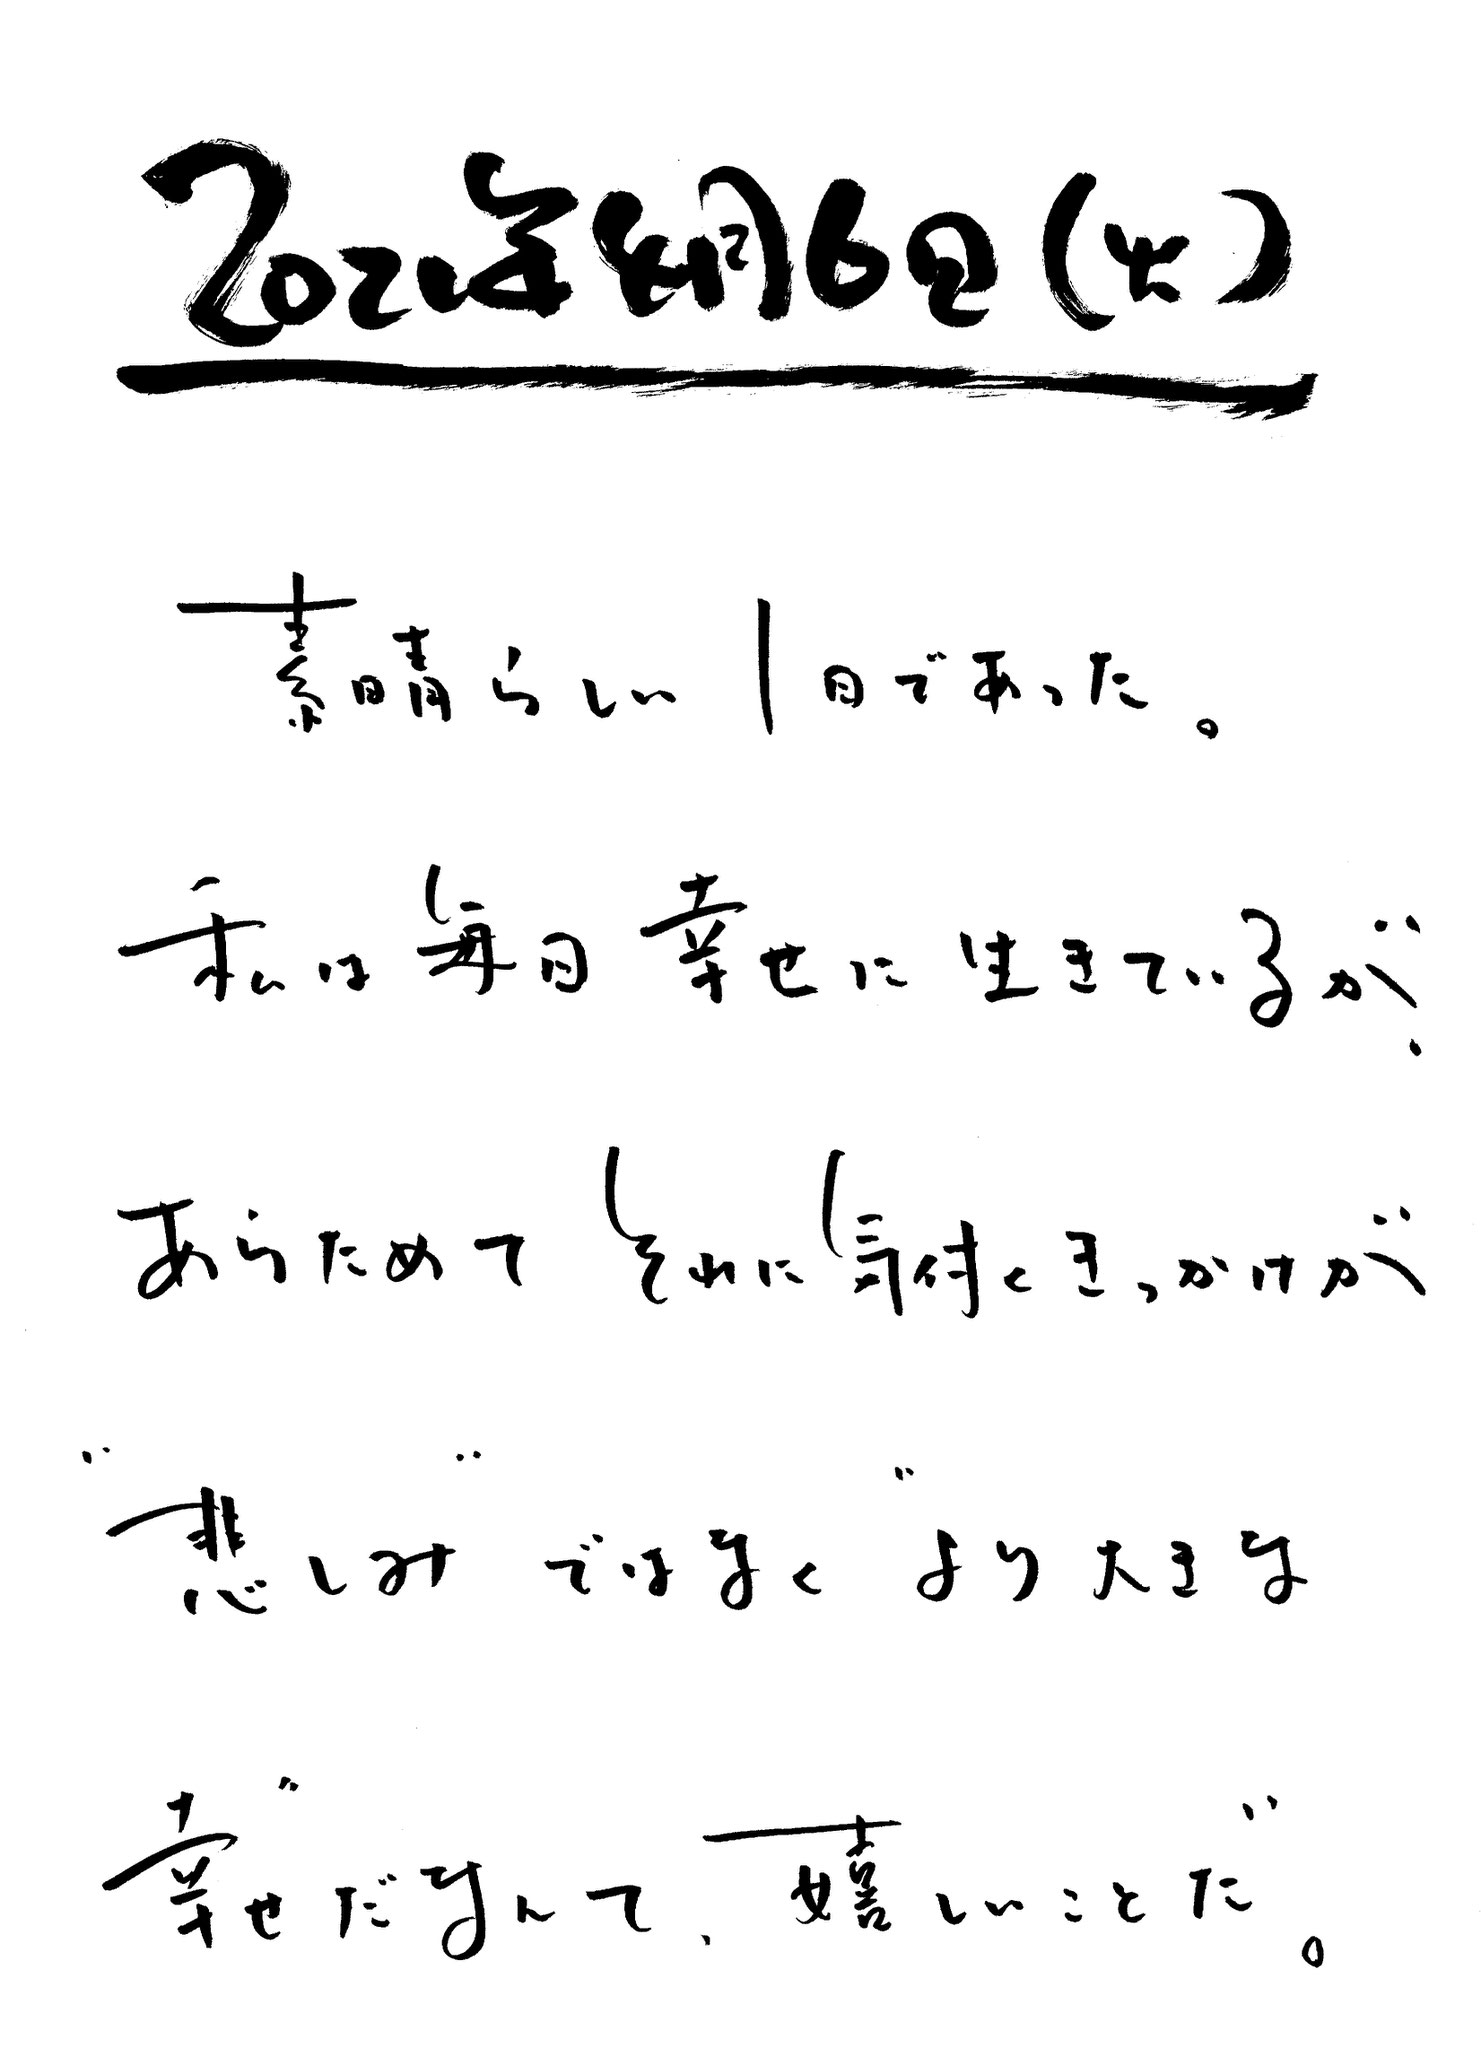 2021年4月6日(火)
素晴らしい1日であった。
私は毎日幸せに生きているが、
あらためてそれに気付くきっかけが
"悲しみ"ではなく"より大きな
幸せ"だなんて、嬉しいことだ。